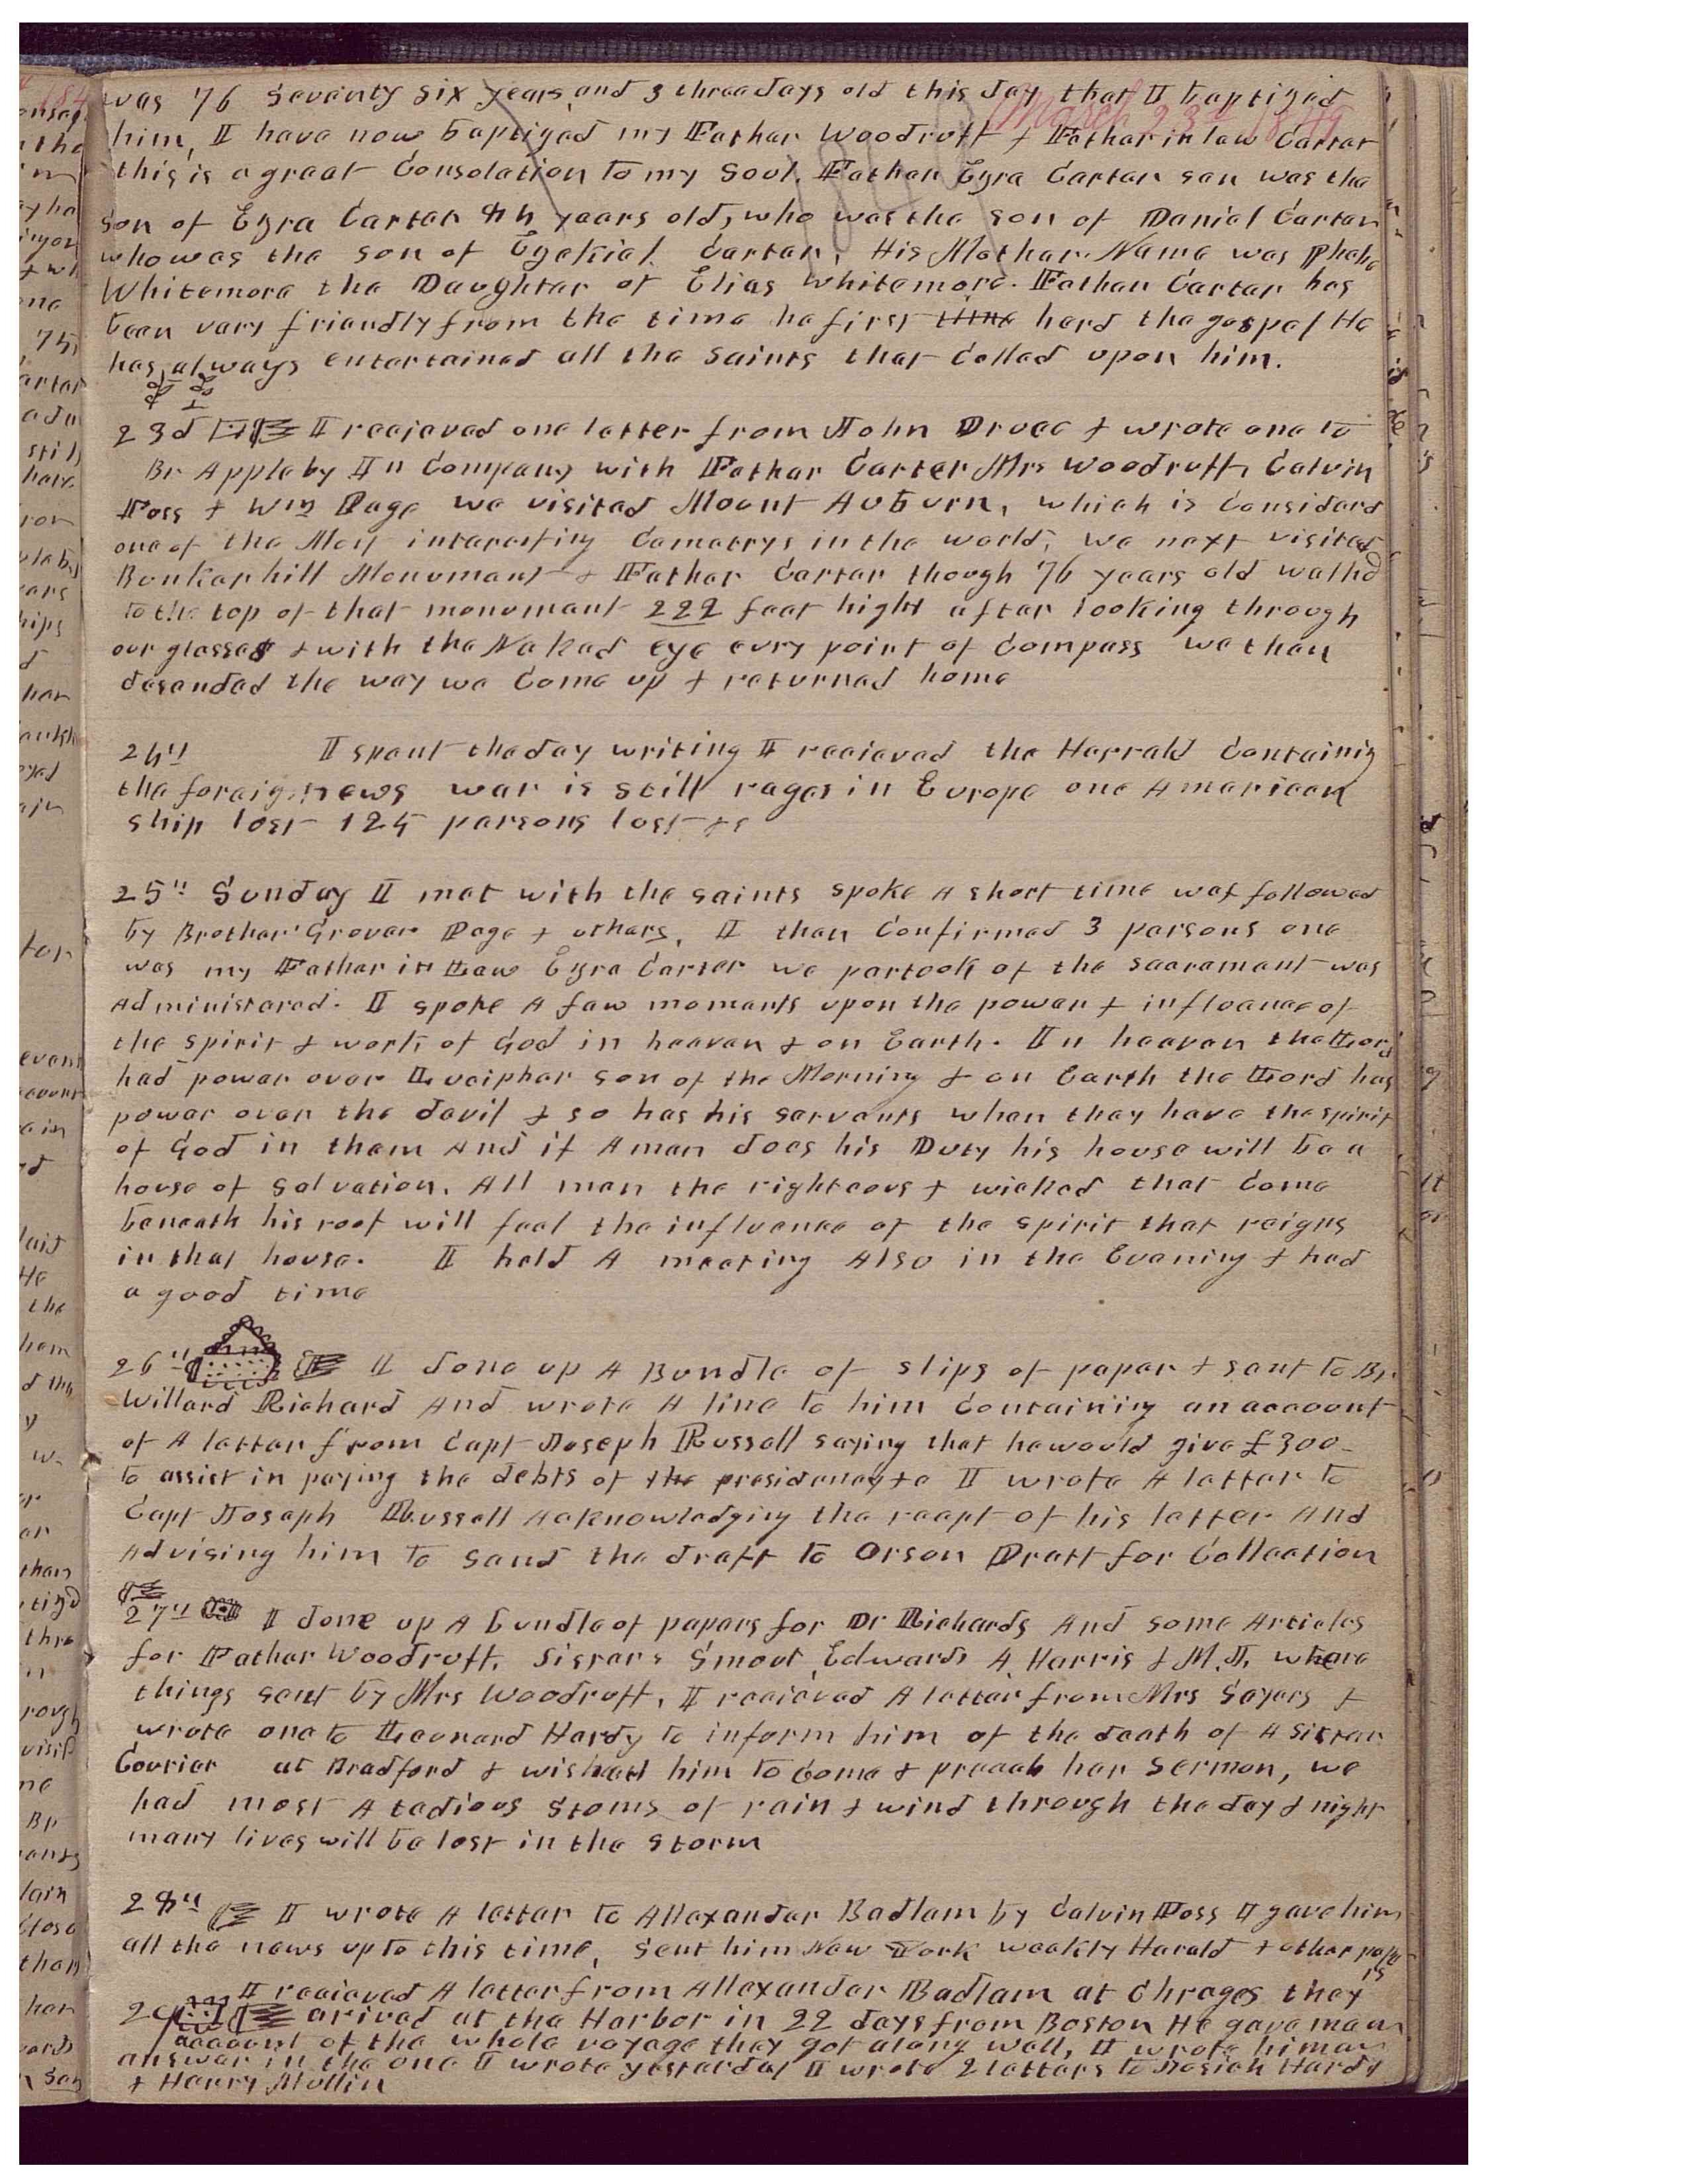 March 23d 1849
was 76 Seventy six years and 3 three days old this day that I baptized
him, I have now baptized my Father Woodruff & Father in law Carter
this is a great Consolation to my Soul. Father Ezra Carter sen was the
son of Ezra Carter 84 years old, who was the son of Daniel Carter
who was the son of Ezekiel Carter, His Mother Name was Phebe
Whitemore the Daughter of Elias Whitemore. Father Carter has
been very friendly from the time he first time herd the gospel He
has always entertained all the Saints that Called upon him.
23d I received one letter from John Druce & wrote one to
Br Appleby In Company with Father Carter Mrs Woodruff, Calvin
Foss & Wm Page we visited Mount Auburn, which is Considerd
one of the Most interesting Cemetrys in the world, we next visited
Bunkerhill Monument & Father Carter though 76 years old walkd
to the top of that monument 222 feet hight after looking through
our glasses & with the Naked eye evry point of Compass we then
desended the way we Come up & returned home
24th I spent the day writing I received the Harrald Containig
the foreign news war is still rages in Europe one American
ship lost 125 persons lost &c
25th Sunday I met with the saints spoke A short time was followed
by Brother Grover Page & others, I then Confirmed 3 persons one
was my Father in Law Ezra Carter we partook of the sacrament was
Administered. I spoke A few moments upon the power & influence of
the spirit & work of God in heaven & on Earth. In heaven the Lord
had power over Lucipher son of the Morning & on Earth the Lord has
power over the devil & so has his servants when they have the spirit
of God in them And if A man does his Duty his house will be a
house of salvation. All men the righteous & wicked that Come
beneath his roof will feel the influence of the spirit that reigns
in that house. I held A meeting Also in the Evening & had
a good time
26th I done up A Bundle of slips of paper & sent to Br
Willard Richard And wrote A line to him Containing an account
of A letter from Capt Joseph Russell saying that he would give £300
to assist in paying the debts of the presidency &c I wrote A letter to
Capt Joseph Russell Acknowledging the recpt of his letter And
Advising him to send the draft to Orson Pratt for Collection
27th I done up A bundle of papers for Dr Richards And some Articles
for Father Woodruff, Sisters Smoot, Edwards A. Harris & M.J. where
things sent by Mrs Woodruff, I received A letter from Mrs Sayers &
wrote one to Leonard Hardy to inform him of the death of A sister
Courier at Bradford & wished him to Come & preach her Sermon, we
had most A tedious Stoms of rain & wind through the day & night
many lives will be lost in the storm
28th I wrote A letter to Allexander Badlam by Calvin Foss I gave him
all the news up to this time, Sent him New York weekly Harald & other papers
I received A letter from Allexander Badlam at Chrages they
29th arived at the Harbor in 22 days from Boston He gave me an
account of the whole voyage they got along well, I wrote him an
answer in the one I wrote yesterday I wrote 2 letters to Josiah Hardy
& Harry Mullin